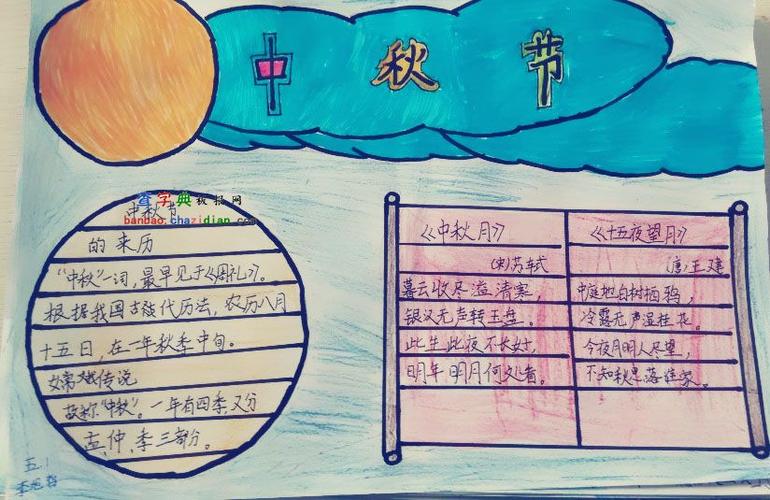 中秋节
查字典板报网
banbao.chazidian.com
中秋节
的来历
“中秋”一词，最早见于《周礼》。
根据我国古代历法，农历八月
十五日，在一年秋季中旬。
嫦娥传说
故称“中秋”。一年有四季又分
孟、仲、季三部分。
《中秋月》
(宋)苏轼
暮云收尽溢清寒，
银汉无声转玉盘。
此生此夜不长好，
明年明月何处看。
《十五夜望月》
(唐)王建
中庭地白树栖鸦，
冷露无声湿桂花。
今夜月明人尽望，
不知秋思落谁家。
五.1